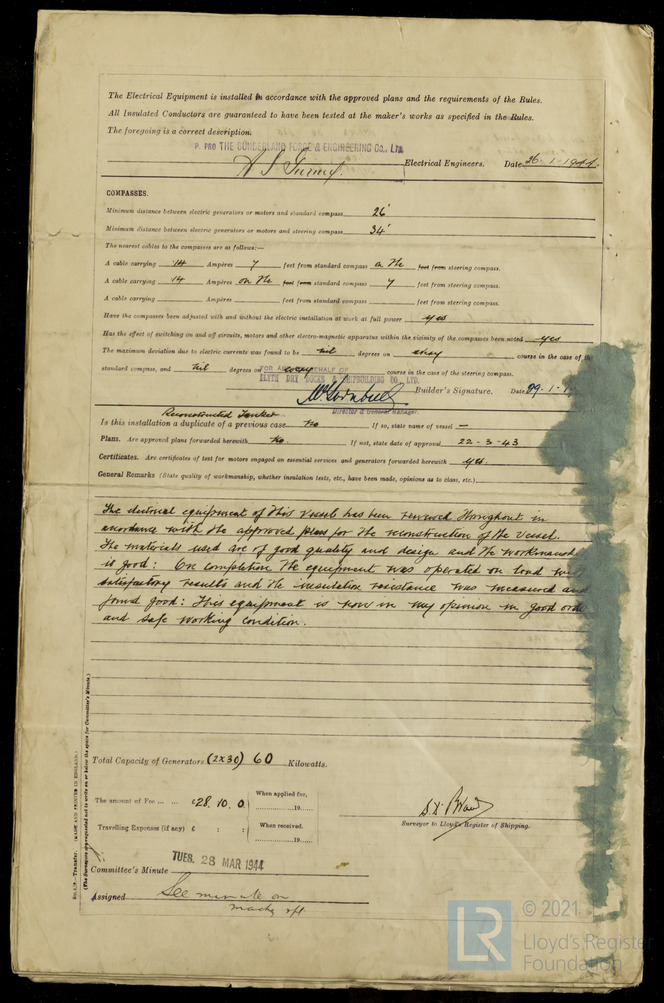 The Electrical Equipment is installed in accordance with the approved plans and the requirements of the Rules.
All Insulated Conductors are guaranteed to have been tested at the maker's works as specified in the Rules.
The foregoing is a correct description.
P. PRO THE SUNDERLAND FORGE & ENGINEERING Co., LTD.
Electrical Engineers. Date 26-1-1944.
COMPASSES.
Minimum distance between electric generators or motors and standard compass 26'
Minimum distance between electric generators or motors and steering compass 34'
The nearest cables to the compasses are as follows:—
A cable carrying 14 Ampères 7 feet from standard compass on the feet from steering compass.
A cable carrying 14 Ampères on the feet from standard compass 7 feet from steering compass.
A cable carrying Ampères feet from standard compass feet from steering compass.
Have the compasses been adjusted with and without the electric installation at work at full power yes
Has the effect of switching on and off circuits, motors and other electro-magnetic apparatus within the vicinity of the compasses been noted yes
The maximum deviation due to electric currents was found to be nil degrees on every course in the case of the
standard compass, and nil degrees on every course in the case of the steering compass.
FOR AND ON BEHALF OF
BLYTH DRY DOCKS & SHIPBUILDING CO. LTD.
Builder's Signature. Date 29-1-
Director & General Manager.
Reconstructed Tanker
Is this installation a duplicate of a previous case No If so, state name of vessel —
Plans. Are approved plans forwarded herewith No. If not, state date of approval 22-3-43
Certificates. Are certificates of test for motors engaged on essential services and generators forwarded herewith yes.
General Remarks (State quality of workmanship, whether insulation tests, etc., have been made, opinions as to class, etc.)
The electrical equipment of this vessel has been renewed throughout in
accordance with the approved plans for the reconstruction of the vessel.
The materials used are of good quality and design and the workmanship
is good: On completion the equipment was operated on load with
satisfactory results and the insulation resistance was measured and
found good: This equipment is now in my opinion in good order
and safe working condition.
Total Capacity of Generators (2x30) 60 Kilowatts.
The amount of Fee ... ... £28.10.0 When applied for, 19
Travelling Expenses (if any) £ : : When received. 19
Surveyor to Lloyd's Register of Shipping.
Committee's Minute TUES. 28 MAR 1944
Assigned See minute on
machy rpt
Transfer. (MADE AND PRINTED IN ENGLAND.)
(The Surveyors are requested not to write on or below the space for Committee's Minute.)
LR
© 2021
Lloyd's Register
Foundation